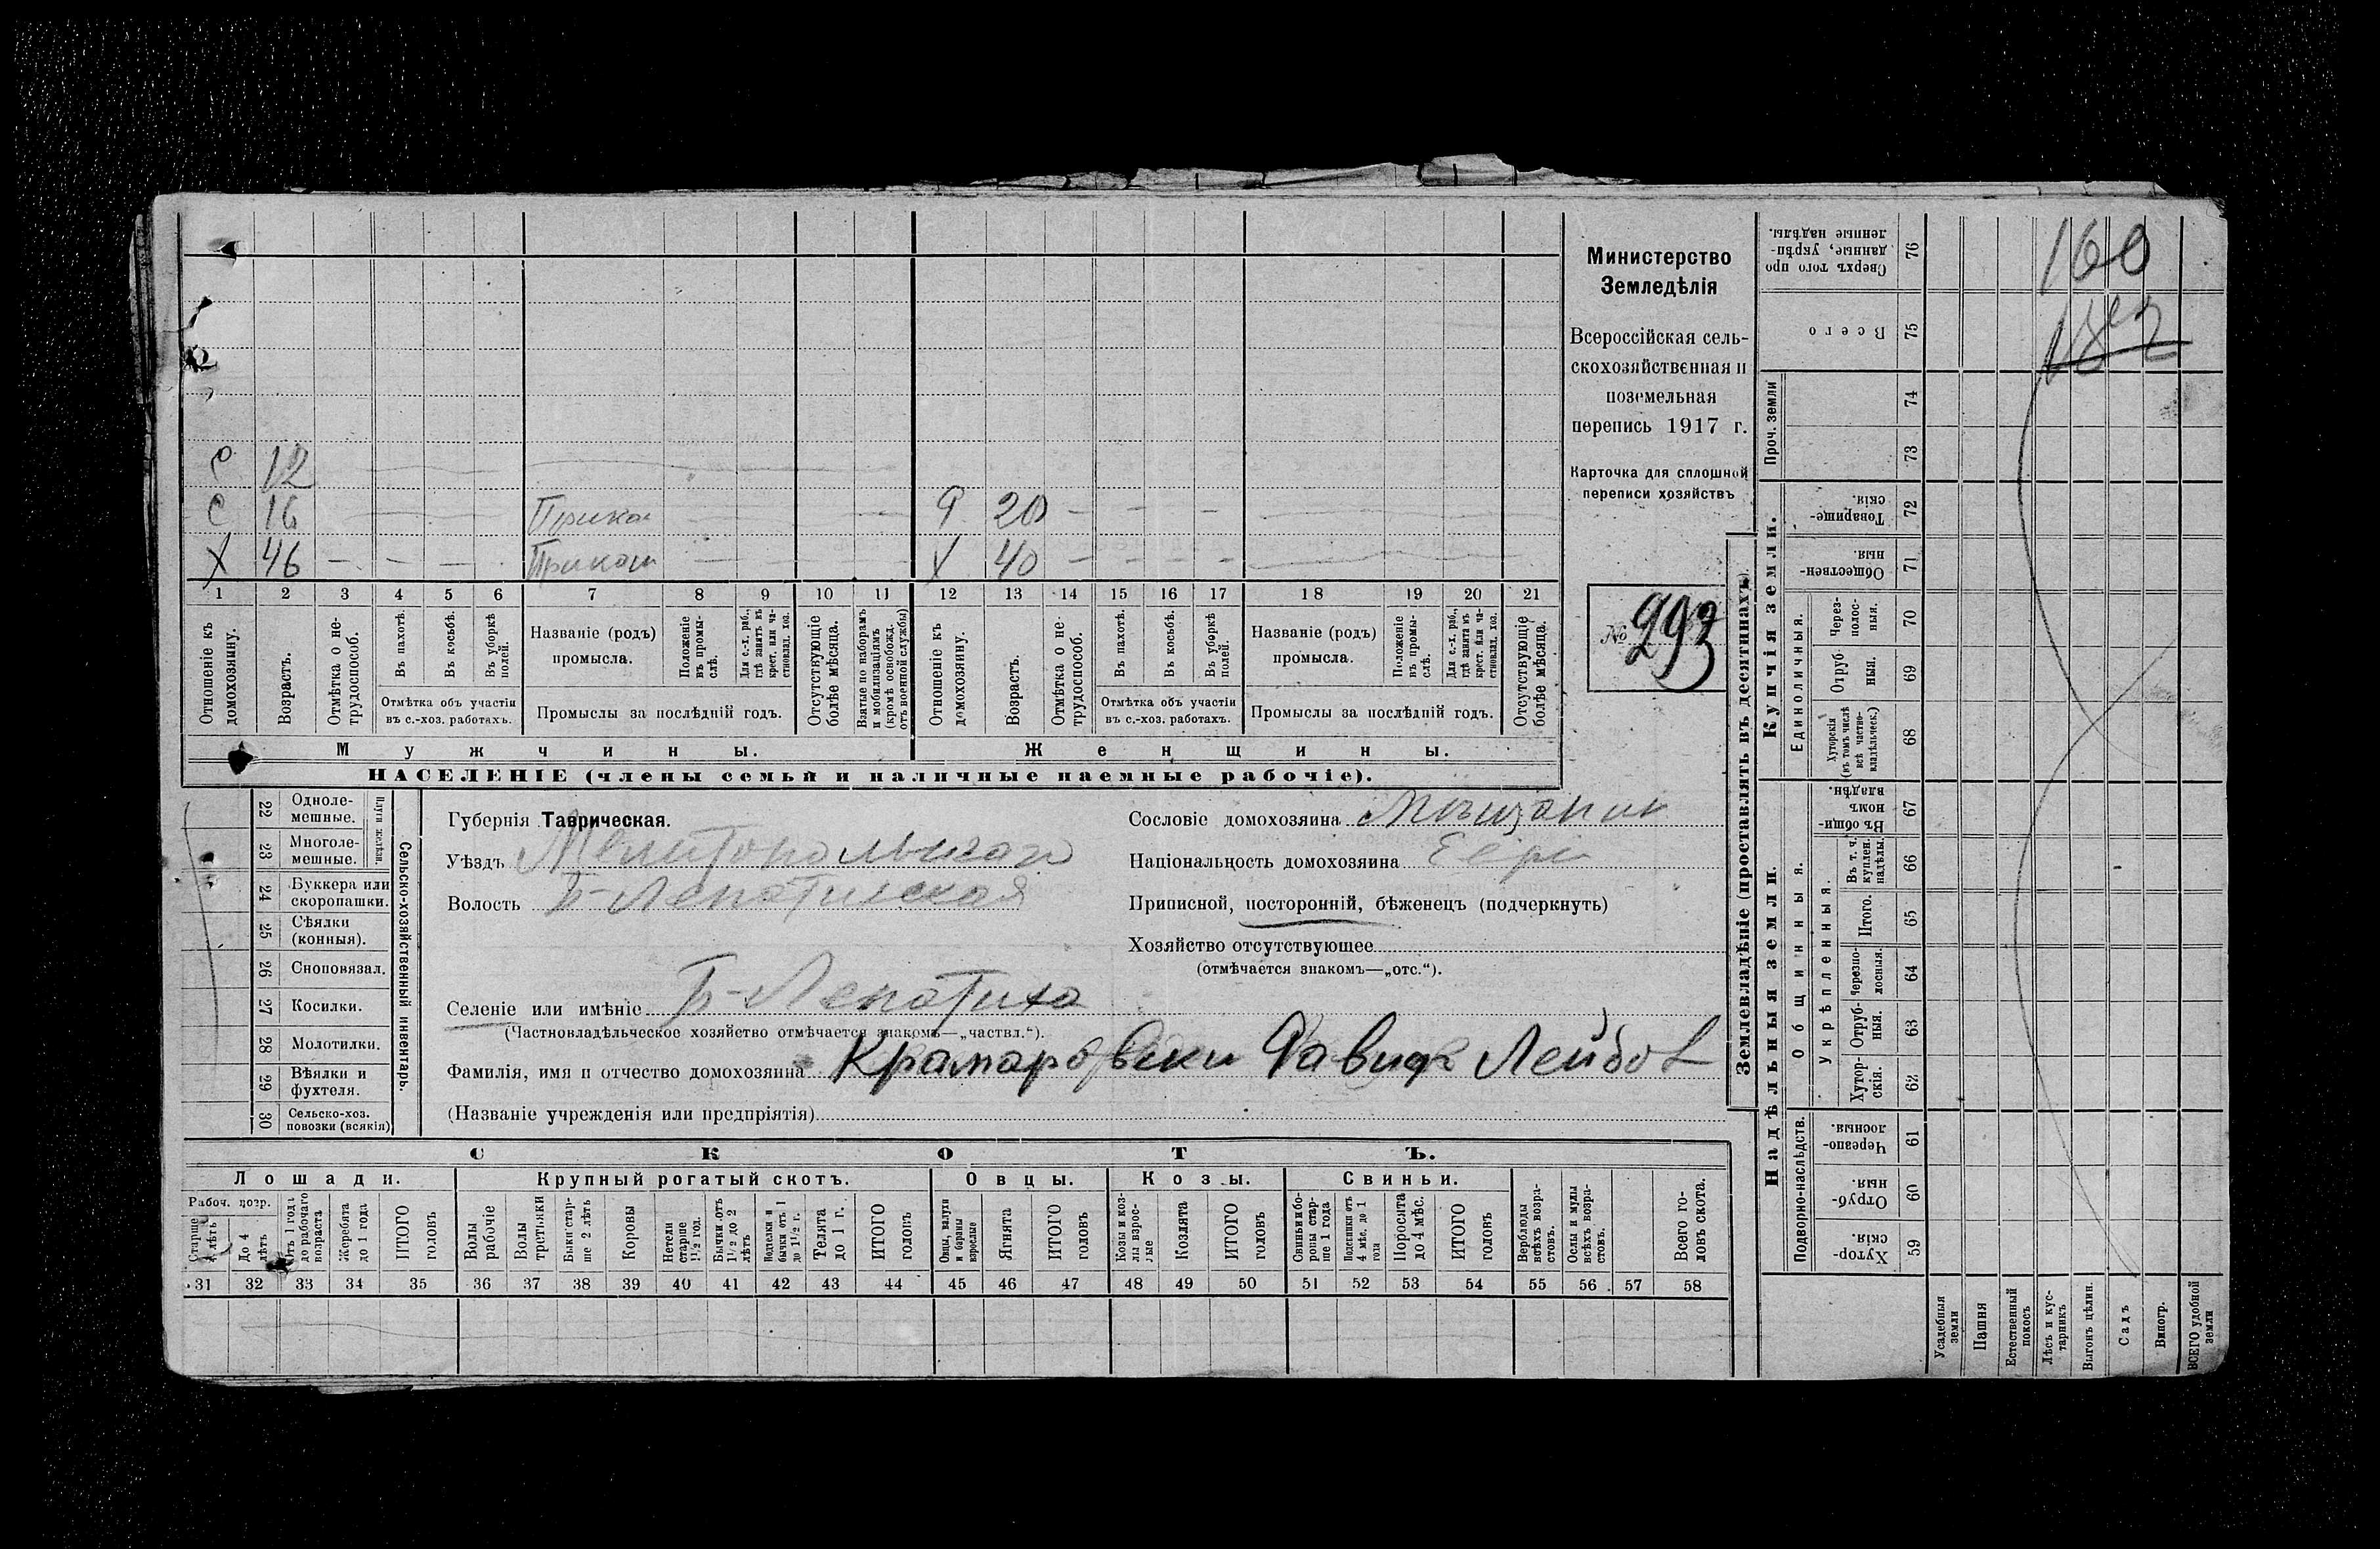 С 12
С 16 Прика Д 20
Х 46 Прикащ Х 40
1 2 3 4 5 6 7 8 9 10 11 12 13 14 15 16 17 18 19 20 21
Отношеніе къ домохозяину.
Возрастъ.
Отмѣтка о нетрудоспособ.
Въ пахотѣ.
Въ косьбѣ.
Въ уборкѣ полей.
Отмѣтка объ участіи
въ с.-хоз. работахъ.
Названіе (родъ)
промысла.
Положеніе въ промыслѣ.
Для с.-х. раб., гдѣ занятъ въ крест. или частновлад. хоз.
Промыслы за послѣдній годъ.
Отсутствующіе болѣе мѣсяца.
Взятые по наборамъ и мобилизаціямъ (кромѣ освобожд. отъ военной службы)
Отношеніе къ домохозяину.
Возрастъ.
Отмѣтка о нетрудоспособ.
Въ пахотѣ.
Въ косьбѣ.
Въ уборкѣ полей.
Отмѣтка объ участіи
въ с.-хоз. работахъ.
Названіе (родъ)
промысла.
Положеніе въ промыслѣ.
Для с.-х. раб., гдѣ занята въ крест. или частновлад. хоз.
Промыслы за послѣдній годъ.
Отсутствующіе болѣе мѣсяца.
Мужчины. Женщины.
НАСЕЛЕНІЕ (члены семьи и наличные наемные рабочіе).
Министерство
Земледѣлія
Всероссійская сель-
скохозяйственная и
поземельная
перепись 1917 г.
Карточка для сплошной
переписи хозяйствъ
№ 293
22 Одноле-
мешные.
23 Многоле-
мешные.
Плуги желѣзн.
24 Буккера или
скоропашки.
25 Сѣялки
(конныя).
26 Сноповязал.
27 Косилки.
28 Молотилки.
29 Вѣялки и
фухтеля.
30 Сельско-хоз.
повозки (всякія)
Сельско-хозяйственный инвентарь.
Губернія Таврическая.
Уѣздъ Мелитопольскій
Волость Б-Лепатихская
Селеніе или имѣніе Б-Лепатиха
(Частновладѣльческое хозяйство отмѣчается знакомъ—„частвл.“).
Фамилія, имя и отчество домохозяина Крамаровски Давид Лейбов
(Названіе учрежденія или предпріятія)
Сословіе домохозяина Мѣщанин
Національность домохозяина Евре
Приписной, посторонній, бѣженецъ (подчеркнуть)
Хозяйство отсутствующее
(отмѣчается знакомъ—„отс.“).
СКОТЪ.
Лошади. Крупный рогатый скотъ. Овцы. Козы. Свиньи.
Рабоч. возр.
Старше 4 лѣтъ
До 4 лѣтъ
Отъ 1 года до рабочаго возраста
Жеребята до 1 года
ИТОГО головъ
Волы рабочіе
Волы третьяки
Быки старше 2 лѣтъ
Коровы
Нетели старше 1½ год.
Бычки отъ 1½ до 2 лѣтъ
Подтелки и бычки отъ 1 до 1½ г.
Телята до 1 г.
ИТОГО головъ
Овцы, валухи и бараны взрослые
Ягнята
ИТОГО головъ
Козы и козлы взрослые
Козлята
ИТОГО головъ
Свиньи и боровы старше 1 года
Подсвинки отъ 4 мѣс. до 1 года
Поросята до 4 мѣс.
ИТОГО головъ
Верблюды всѣхъ возрастовъ.
Ослы и мулы всѣхъ возрастовъ.
Всего головъ скота.
31 32 33 34 35 36 37 38 39 40 41 42 43 44 45 46 47 48 49 50 51 52 53 54 55 56 57 58
Землевладѣніе (проставлять въ десятинахъ)
160
Сверхъ того проданные, укрѣпленные надѣлы. 76
Всего 75
74
73
Проч. земли
Товарищескія. 72
Общественныя. 71
Черезполосныя. 70
Отрубныя. 69
Хуторскія (въ томъ числѣ всѣ частновладѣльческ.) 68
Единоличныя.
Купчія земли.
Въ общинномъ владѣн. 67
Въ т. ч. куплен. надѣлы 66
Итого. 65
Черезполосныя. 64
Отрубныя. 63
Хуторскія. 62
Укрѣпленныя.
Общинныя.
Черезполосныя. 61
Отрубныя. 60
Хуторскія. 59
Подворно-наслѣдств.
Надѣльныя земли.
Усадебныя земли
Пашня
Естественный покосъ
Лѣсъ и кустарникъ
Выгонъ цѣлин.
Садъ
Виногр.
ВСЕГО удобной земли